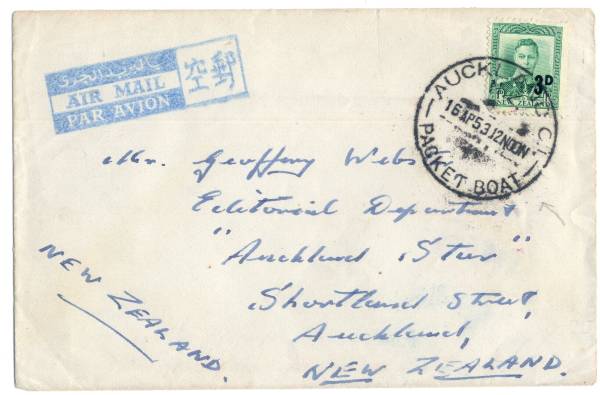 AIR MAIL
PAR AVION
空郵
3D
16 AP 53 12 NOON
PACKET BOAT
Mr. Geoffrey Webs
Editorial Department
"Auckland Star"
Shortland Street,
Auckland,
NEW ZEALAND.
NEW ZEALAND.